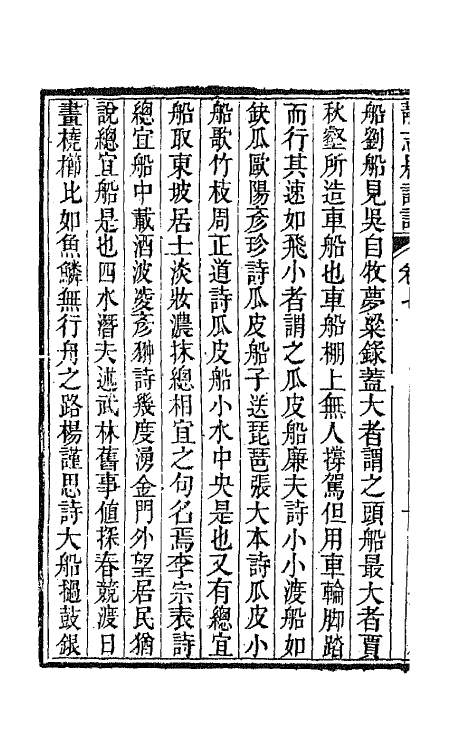 船劉船見吳自牧夢粱錄蓋大者謂之頭船最大者賈
秋壑所造車船也車船棚上無人撐駕但用車輪脚踏
而行其速如飛小者謂之瓜皮船廉夫詩小小渡船如
缺瓜歐陽彥珍詩瓜皮船子送琵琶張大本詩瓜皮小
船歌竹枝周正道詩瓜皮船小水中央是也又有總宜
船取東坡居士淡妝濃抹總相宜之句名焉李宗表詩
總宜船中載酒波淩彥翀詩幾度湧金門外望居民猶
說總宜船是也四水潛夫述武林舊事値探春競渡日
畫橈櫛比如魚鱗無行舟之路楊謹思詩大船撾鼓銀